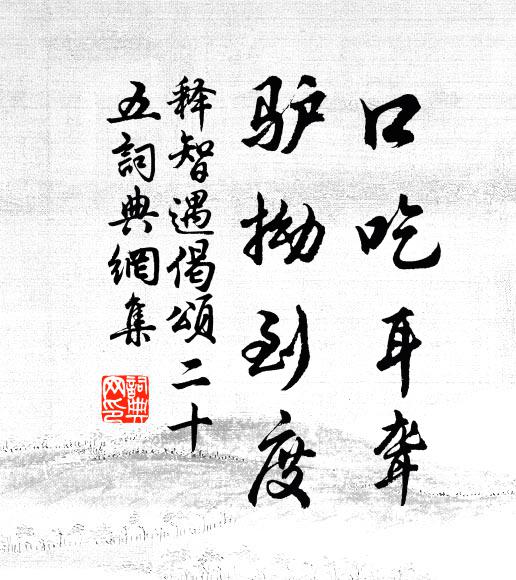 口吃耳聋
驴拗到度
释智遇偈颂二十
五詞典網集
詞典
网印